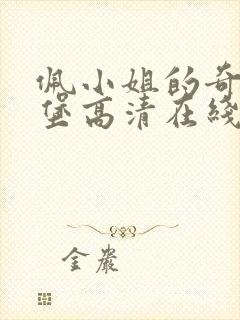 佩小姐的奇
堡高清在线
金岩